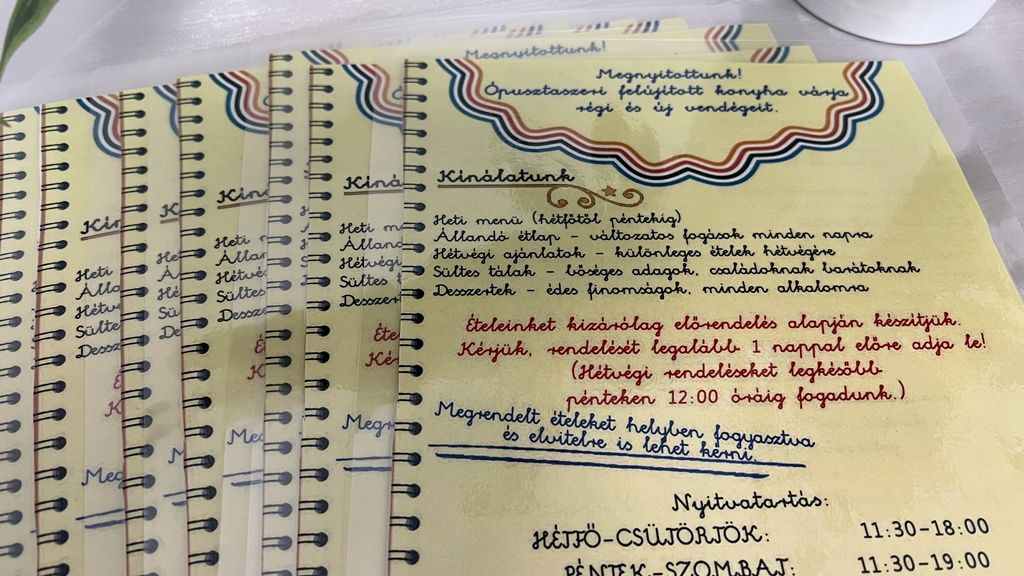 Megnyitottunk!
Megnyitottunk!
Ópusztaszeri felújított konyha várja
régi és új vendégeit.
Kínálatunk
Heti menü (hétfőtől péntekig)
Állandó étlap - változatos fogások minden napra
Hétvégi ajánlatok - különleges ételek hétvégére
Sültes tálak - bőséges adagok, családoknak barátoknak
Desszertek - édes finomságok, minden alkalomra
Ételeinket kizárólag előrendelés alapján készítjük.
Kérjük, rendelését legalább 1 nappal előre adja le!
(Hétvégi rendeléseket legkésőbb
pénteken 12:00 óráig fogadunk.)
Megrendelt ételeket helyben fogyasztva
és elvitelre is lehet kérni.
Nyitvatartás:
HÉTFŐ-CSÜTÖRTÖK: 11:30-18:00
PÉNTEK-SZOMBAT: 11:30-19:00